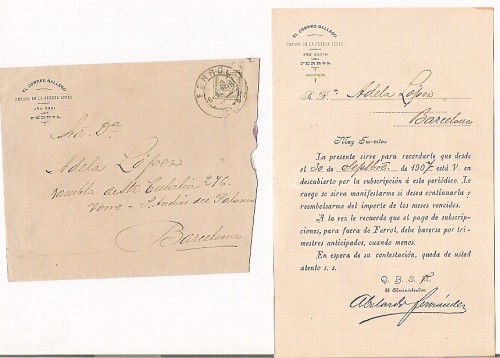 EL CORREO GALLEGO
DECANO DE LA PRENSA LOCAL
FERROL
FERROL
Sra. Dª
Adela López
Rambla de Sta. Eulalia 246
Torre
Barcelona
EL CORREO GALLEGO
DECANO DE LA PRENSA LOCAL
FERROL
Adela López
Barcelona
Muy Sr. mío:
La presente sirve para recordarle que desde
el 30 de Sepbre. de 1907 está V. en
descubierto por la subscripción á este periódico. Le
ruego se sirva manifestarme si desea continuarla y
reembolsarme del importe de los meses vencidos.
A la vez le recuerdo que el pago de subscrip-
ciones, para fuera de Ferrol, debe hacerse por tri-
mestres anticipados, cuando menos.
En espera de su contestación, queda de usted
atento s. s.
Q. B. S.
El Administrador
Abelardo Fernández